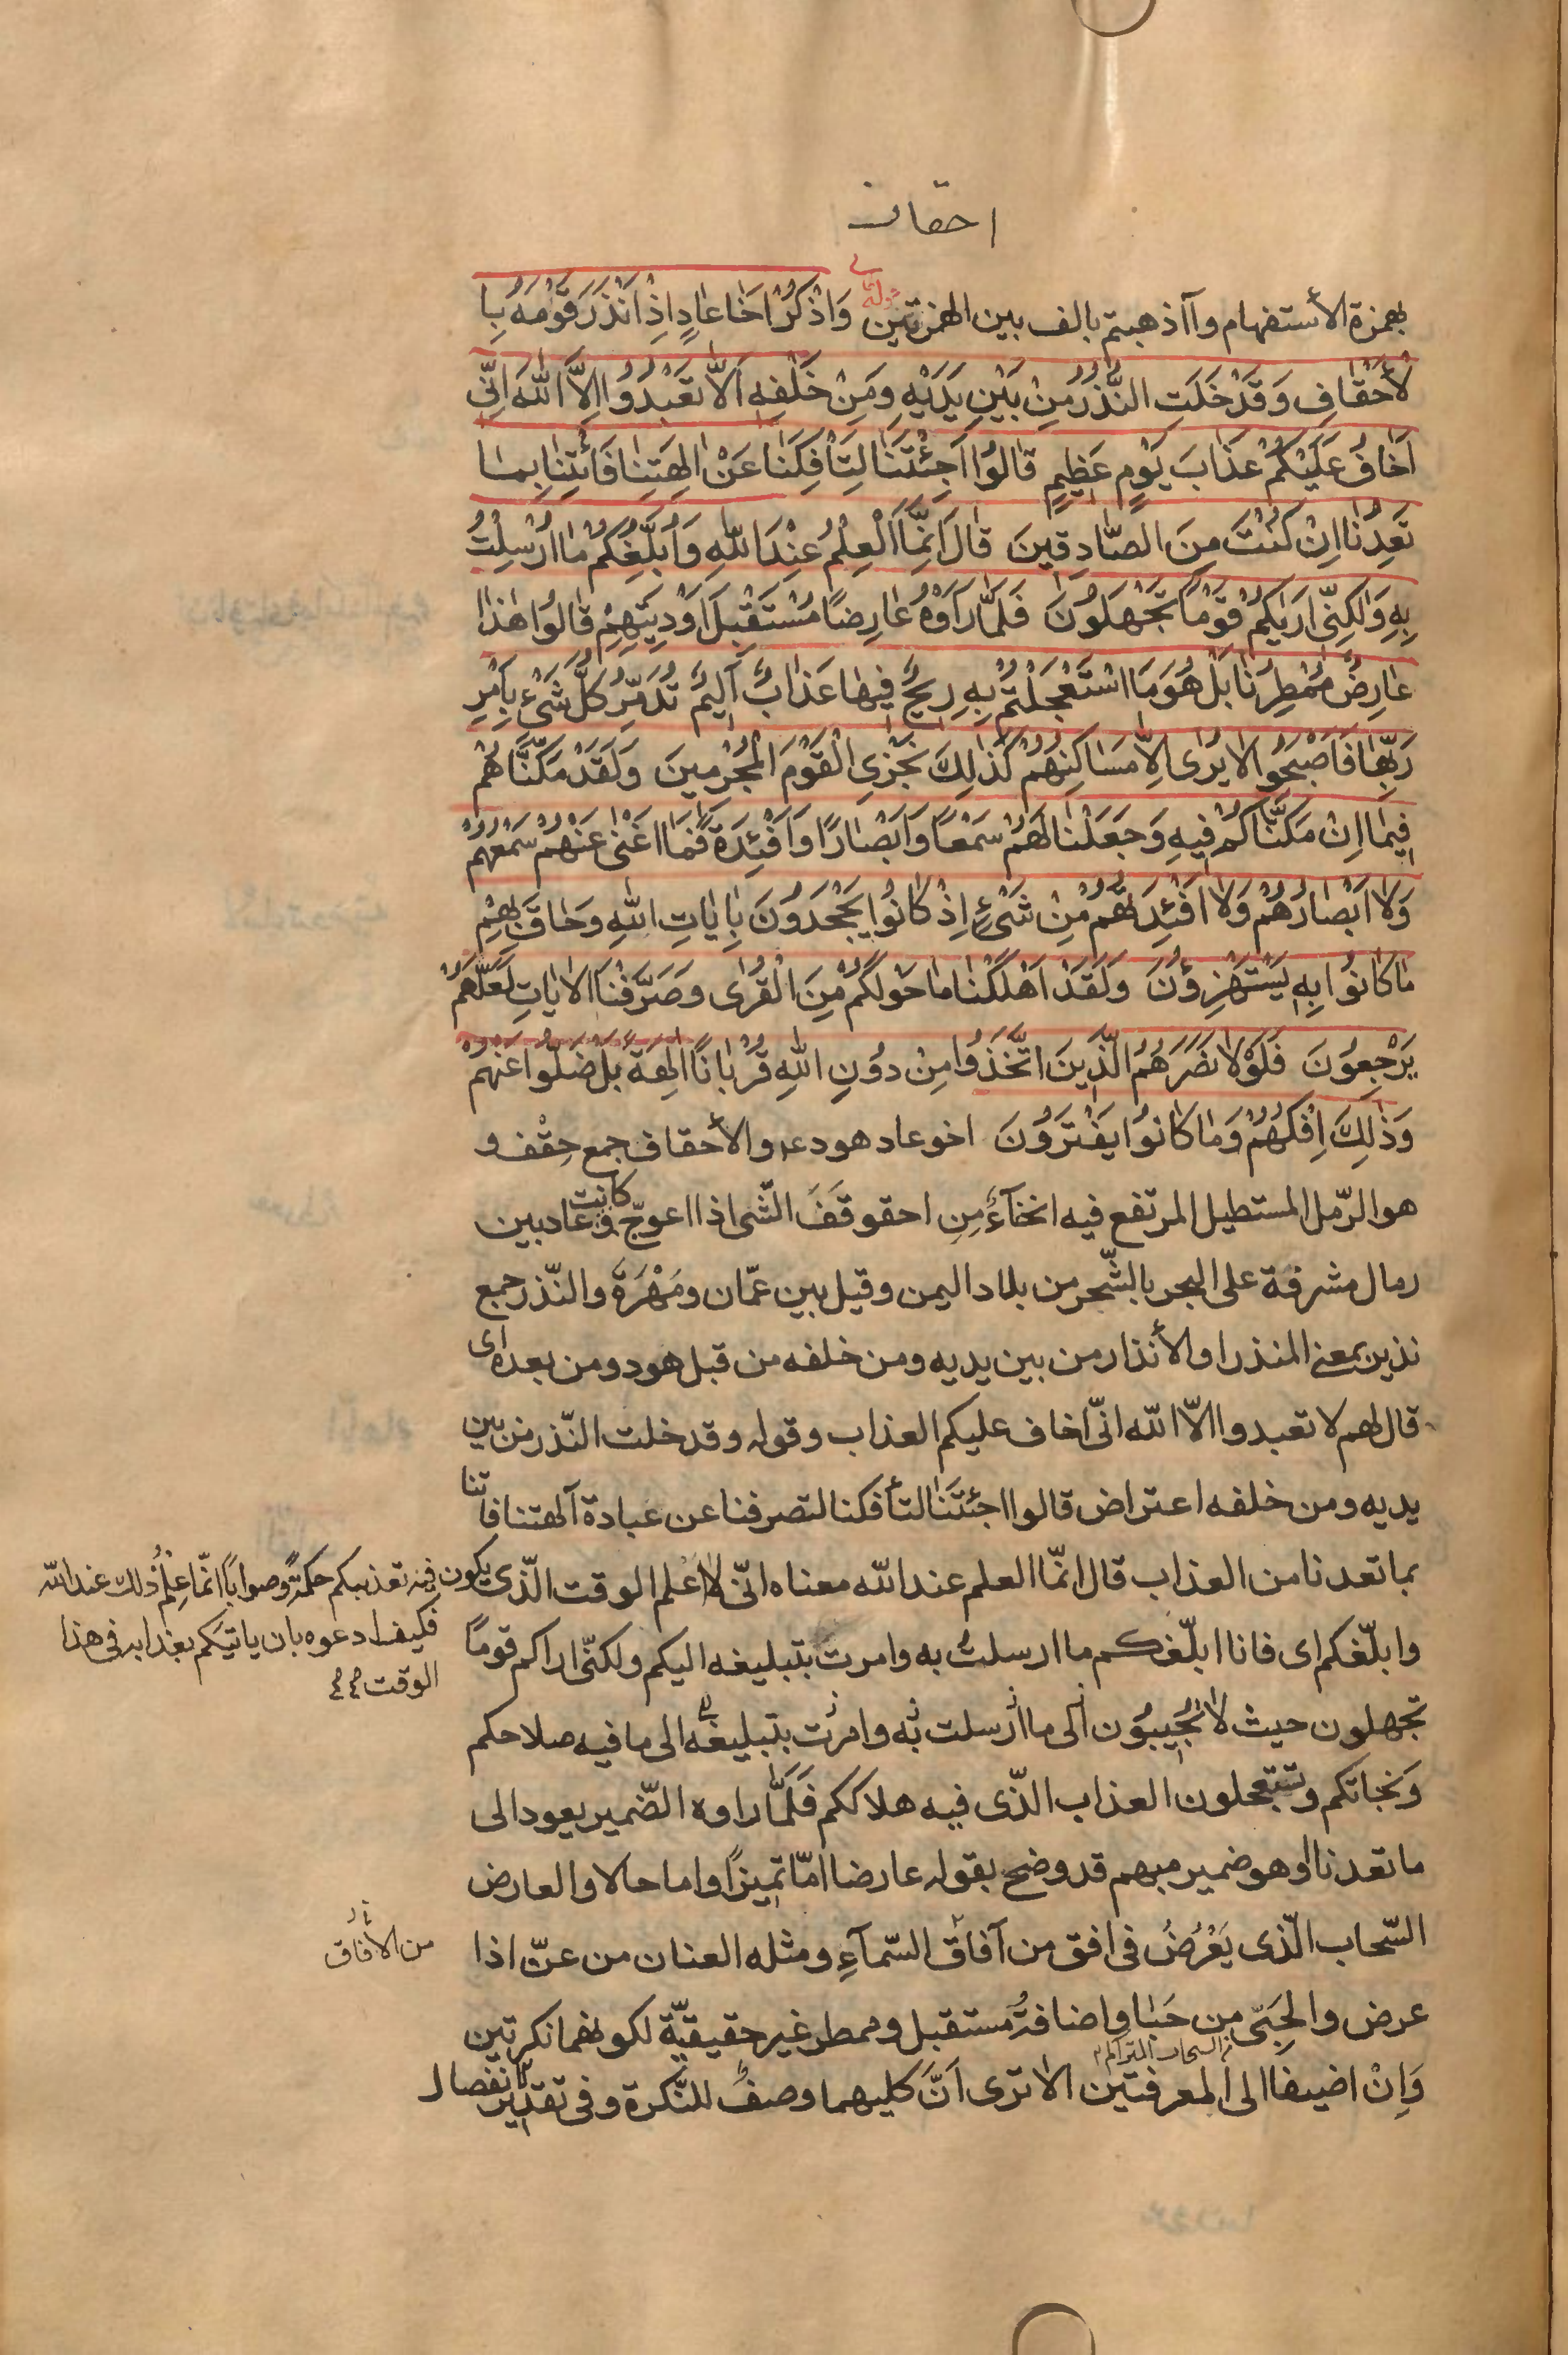 احقاف
بهمزة الأستفهام وآأذهبتم بالف بين الهمزتين قوله تعالى وَاذْكُرْ اَخَا عَادٍ اِذْ اَنْذَرَ قَوْمَهُ بِا
لْأَحْقَافِ وَقَدْ خَلَتِ النُّذُرُ مِنْ بَيْنِ يَدَيْهِ وَمِنْ خَلْفِهِ اَلَّا تَعْبُدُوا اِلَّا اللّٰهَ اِنِّى
اَخَافُ عَلَيْكُمْ عَذَابَ يَوْمٍ عَظِيمٍ قَالُوا اَجِئْتَنَا لِتَأْفِكَنَا عَنْ اٰلِهَتِنَا فَأْتِنَا بِمَا
تَعِدُنَا اِنْ كُنْتَ مِنَ الصَّادِقِينَ قَالَ اِنَّمَا الْعِلْمُ عِنْدَ اللّٰهِ وَاُبَلِّغُكُمْ مَا اُرْسِلْتُ
بِهِ وَلٰكِنِّى اَرٰيكُمْ قَوْمًا تَجْهَلُونَ فَلَمَّا رَاَوْهُ عَارِضًا مُسْتَقْبِلَ اَوْدِيَتِهِمْ قَالُوا هٰذَا
عَارِضٌ مُمْطِرُنَا بَلْ هُوَ مَا اسْتَعْجَلْتُمْ بِهِ رِيحٌ فِيهَا عَذَابٌ اَلِيمٌ تُدَمِّرُ كُلَّ شَىْءٍ بِاَمْرِ
رَبِّهَا فَاَصْبَحُوا لَا يُرٰى اِلَّا مَسَاكِنُهُمْ كَذٰلِكَ نَجْزِى الْقَوْمَ الْمُجْرِمِينَ وَلَقَدْ مَكَّنَّاهُمْ
فِيمَا اِنْ مَكَّنَّاكُمْ فِيهِ وَجَعَلْنَا لَهُمْ سَمْعًا وَاَبْصَارًا وَاَفْئِدَةً فَمَا اَغْنٰى عَنْهُمْ سَمْعُهُمْ
وَلَا اَبْصَارُهُمْ وَلَا اَفْئِدَتُهُمْ مِنْ شَىْءٍ اِذْ كَانُوا يَجْحَدُونَ بِاٰيَاتِ اللّٰهِ وَحَاقَ بِهِمْ
مَا كَانُوا بِهِ يَسْتَهْزِؤُنَ وَلَقَدْ اَهْلَكْنَا مَا حَوْلَكُمْ مِنَ الْقُرٰى وَصَرَّفْنَا الْاٰيَاتِ لَعَلَّهُمْ
يَرْجِعُونَ فَلَوْلَا نَصَرَهُمُ الَّذِينَ اتَّخَذُوا مِنْ دُونِ اللّٰهِ قُرْبَانًا اٰلِهَةً بَلْ ضَلُّوا عَنْهُمْ
وَذٰلِكَ اِفْكُهُمْ وَمَا كَانُوا يَفْتَرُونَ اخو عاد هود ع والأحقاف جمع حِقْف و
هو الرّمل المستطيل المرتفع فيه انحنآءٌ مِن احقوقَفَ الشّى اذا اعوجّ وكانت عاد بين
رمال مشرفة على البحر بالشّحر من بلاد اليمن وقيل بين عمّان ومَهْرَة والنّذر جمع
نذير بمعنى المنذر او الأنذار من بين يديه ومن خلفه من قبل هود ومن بعده اى
قال لهم لا تعبدوا الّا اللّه انّى اخاف عليكم العذاب وقوله وقد خلت النّذر من بين
يديه ومن خلفه اعتراض قالوا اجئتَنَا لتأفكنا لتصرفنا عن عبادة آلهتنا فاتنا
بما تعدنا من العذاب قال انّما العلم عند اللّه معناه انّى لا اَعْلم الوقت الّذى يكون فيه تعذيبكم حكمةً وصوابًا انّما عِلْمُ ذلك عند اللّه
فكيف ادعوه بان ياتيكم بعذابه فى هذا
الوقت
وابلّغكم اى فانا ابلّغكم ما ارسلتُ به وامرت بتبليغه اليكم ولكنّى اراكم قومًا
تجهلون حيث لا تُجِيبُون الى ما ارسلت به وامرت بتبليغه الى ما فيه صلاحكم
وَنجاتكم وتستعجلون العذاب الّذى فيه هلاككم فَلَمَّا راوه الضّمير يعود الى
ما تعدنا او هو ضمير مبهم قد وضح بقوله عارضا امّا تميزًا واما حالا والعارض
السّحاب الّذى يَعْرُضُ فى افق من آفاق السّمآءِ ومثله العنان من عنّ اذا
من الأفاق
عرض والحَبِىّ من حَبَا واضافةُ مستقبل وممطر غير حقيقيّة لكونهما نكرتين
السحاب المتراكم
وَاِنْ اضيفا الى المعرفتين الا ترى اَنَّ كليهما وصفٌ للنّكرة وفى تقدير انفصال